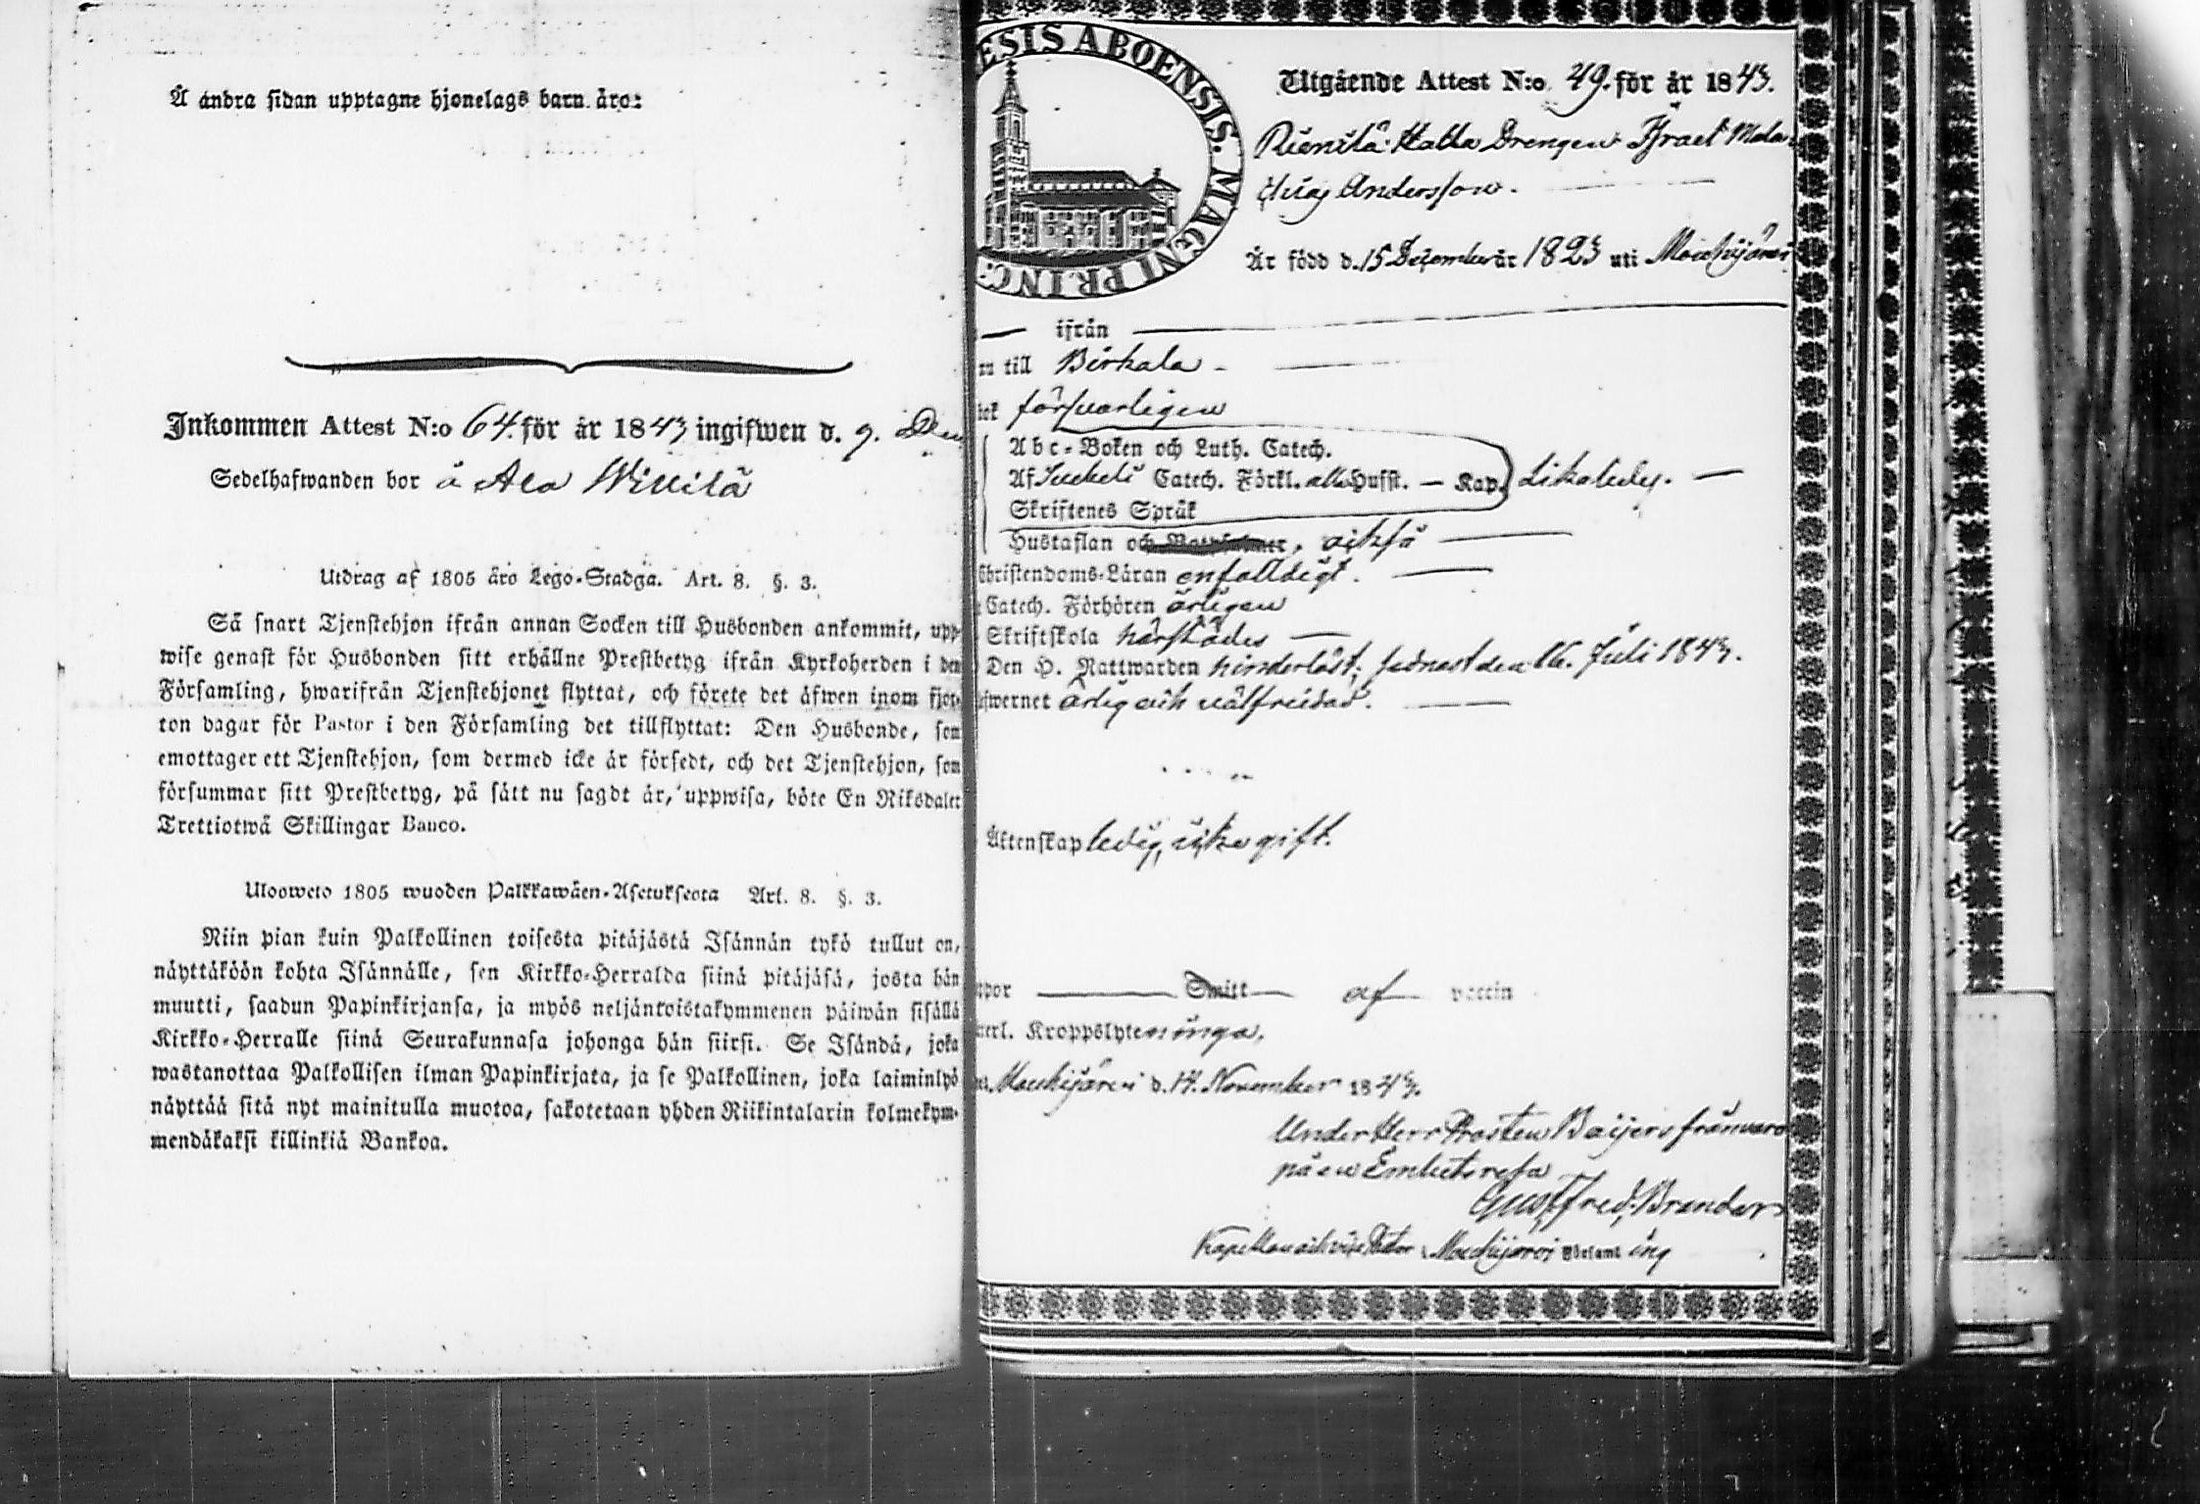 Å andra sidan upptagne hjonelags barn äro:
Inkommen Attest N:o 64. för år 1843 ingifwen d. 9.
Sedelhafwanden bor å Ala Willilä
Utdrag af 1805 åro Lego-Stadga. Art. 8. §. 3.
Så snart Tjenstehjon ifrån annan Socken till Husbonden ankommit, upp-
wise genast för Husbonden sitt erhållne Prestbetyg ifrån Kyrkoherden i den
Församling, hwarifrån Tjenstehjonet flyttat, och förete det äfwen inom fjor-
ton dagar för Pastor i den Församling det tillflyttat: Den Husbonde, som
emottager ett Tjenstehjon, som dermed icke är försedt, och det Tjenstehjon, som
försummar sitt Prestbetyg, på sätt nu sagdt är, uppwisa, böte En Riksdaler
Trettiotwå Skillingar Banco.
Ulosweto 1805 wuoden Palkkawäen-Asetuksesta Art. 8. §. 3.
Niin pian kuin Palkollinen toisesta pitäjästä Isännän tykö tullut on,
näyttäköön kohta Isännälle, sen Kirkko-Herralda siinä pitäjäsä, josta hän
muutti, saadun Papinkirjansa, ja myös neljäntoistakymmenen päiwän sisällä
Kirkko-Herralle siinä Seurakunnasa johonga hän siirsi. Se Isändä, joka
wastanottaa Palkollisen ilman Papinkirjata, ja se Palkollinen, joka laiminlyö
näyttää sitä nyt mainitulla muotoa, sakotetaan yhden Riikintalarin kolmekym-
mendäkaksi killinkiä Bankoa.
ESIS ABOENSIS. MAGNI PRINC:
Utgående Attest N:o 49. för år 1843.
Drengen Israel
Andersson.
Är född d. 15 December år 1823 uti Mouhijärvi
ifrån
till Birkala
försvarligen
Abc-Boken och Luth. Catech.
Af Catech. Förkl. alla Hufst. — Kap. likaledes. —
Skriftenes Språk
Hustaflan och också
Christendoms-Läran enfalldigt.
Catech. Förhören årligen
Skriftskola härstädes
Den H. Nattwarden hinderlöst, sednast den 16. Juli 1843.
ärlig och välfrejdad.
Äktenskap ledig, icke gift.
Smitt af vaccin
Kroppslyten inga.
Mouhijärvi d. 14. November 1843.
Under Herr Prosten Baijers frånvaro
på en Embetsresa
Gust. Fred. Brander
Kapellan och vice Pastor i Mouhijärvi Församling